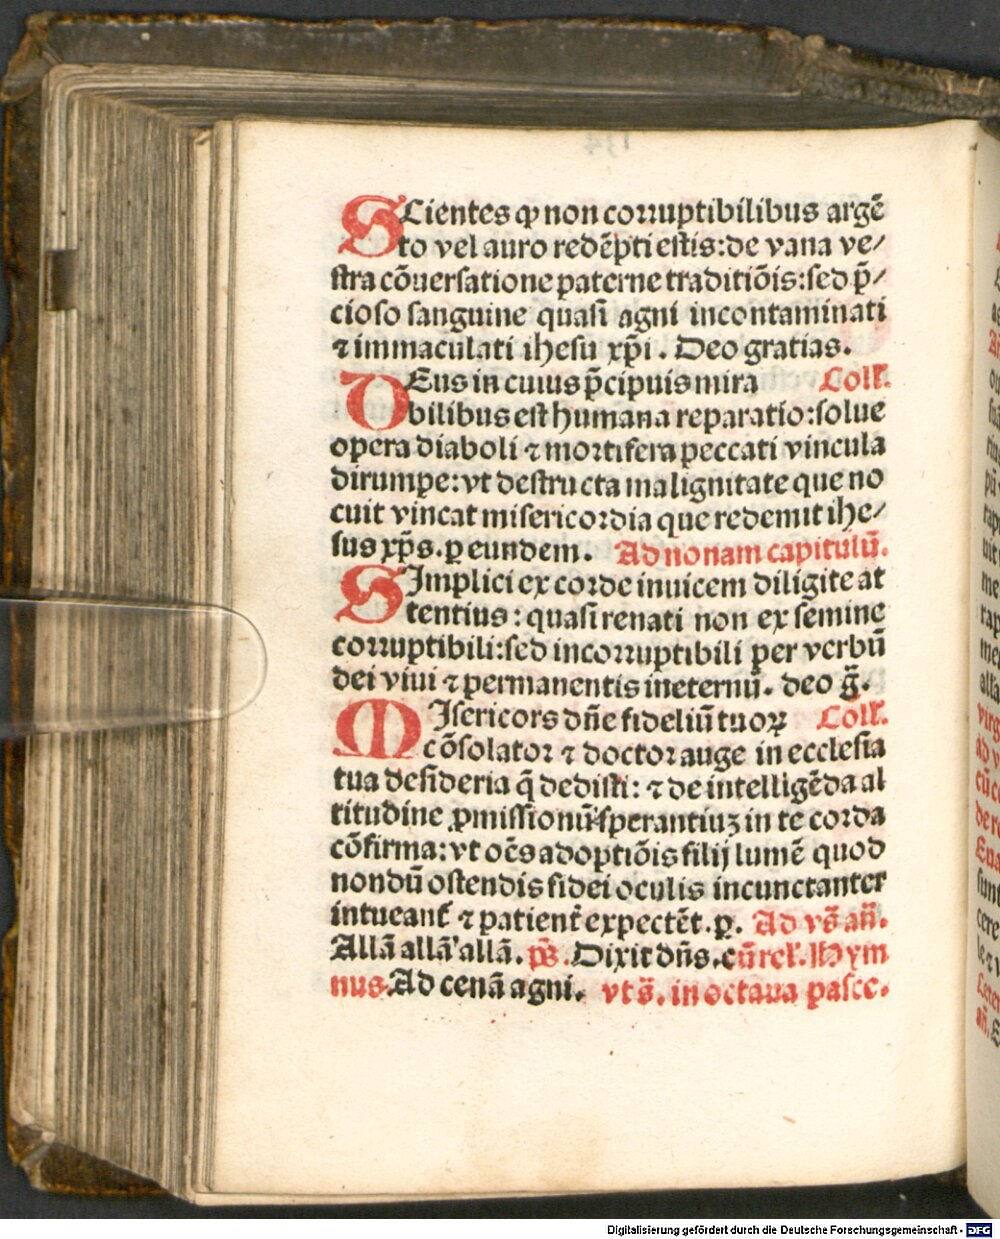 SCientes ꝙ non corruptibilibus argē
to vel auro redēpti estis: de vana ve⸗
stra cōuersatione paterne traditiōis: sed p̄⸗
cioso sanguine quasi agni incontaminati
⁊ immaculati ihesu xp̄i. Deo gratias.
DEus in cuius p̄cipuis mira Coll'.
bilibus est humana reparatio: solue
opera diaboli ⁊ mortifera peccati vincula
dirumpe: vt destructa malignitate que no
cuit vincat misericordia que redemit ihe⸗
sus xp̄s. ꝑ eundem. Ad nonam capitulū.
SImplici ex corde inuicem diligite at
tentius: quasi renati non ex semine
corruptibili: sed incorruptibili per verbū
dei viui ⁊ permanentis ineternū. deo g̅.
MIsericors dn̄e fideliū tuoꝝ Coll'.
cōsolator ⁊ doctor auge in ecclesia
tua desideria q̄ dedisti: ⁊ de intelligēda al
titudine ꝓmissionū sperantiuꝫ in te corda
cōfirma: vt oēs adoptiōis filij lumē quod
nondū ostendis fidei oculis incunctanter
intueant᷑ ⁊ patient᷑ expectēt. ꝑ. Ad vs̄ an̄.
Allā allā allā. ps̄. Dixit dn̄s. cū rel'. Hym
nus. Ad cenā agni. vt s̄. in octaua pasce.
Digitalisierung gefördert durch die Deutsche Forschungsgemeinschaft - DFG